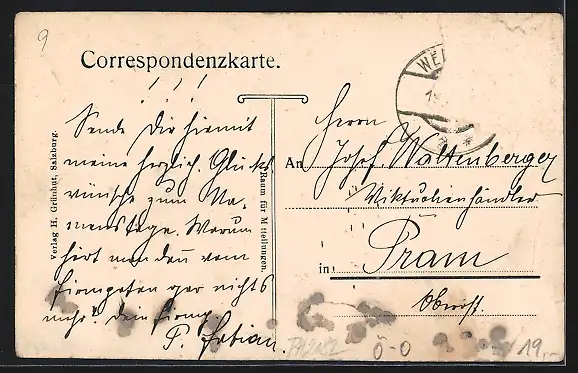 9
Correspondenzkarte.
! ! !
Sende Dir hiermit
meine herzlich. Glück-
wünsche zum Na-
menstage. Warum
hört man denn vom
Firmpaten gar nichts
mehr? Dein Firmp.
P. Fabian.
Verlag H. Grünhut, Salzburg.
Raum für Mitteilungen.
WEL
Herrn
An Josef Waltenberger
Viktualienhändler
in Pram
Oberöst.
Ö-O
19,-